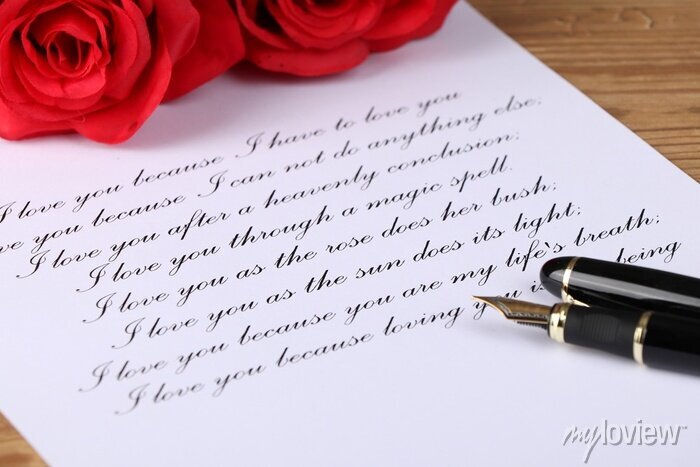 I love you because I have to love you
love you because I can not do anything else;
I love you after a heavenly conclusion;
I love you through a magic spell.
I love you as the rose does her bush;
I love you as the sun does its light;
I love you because you are my life's breath;
I love you because loving you is being
myloview